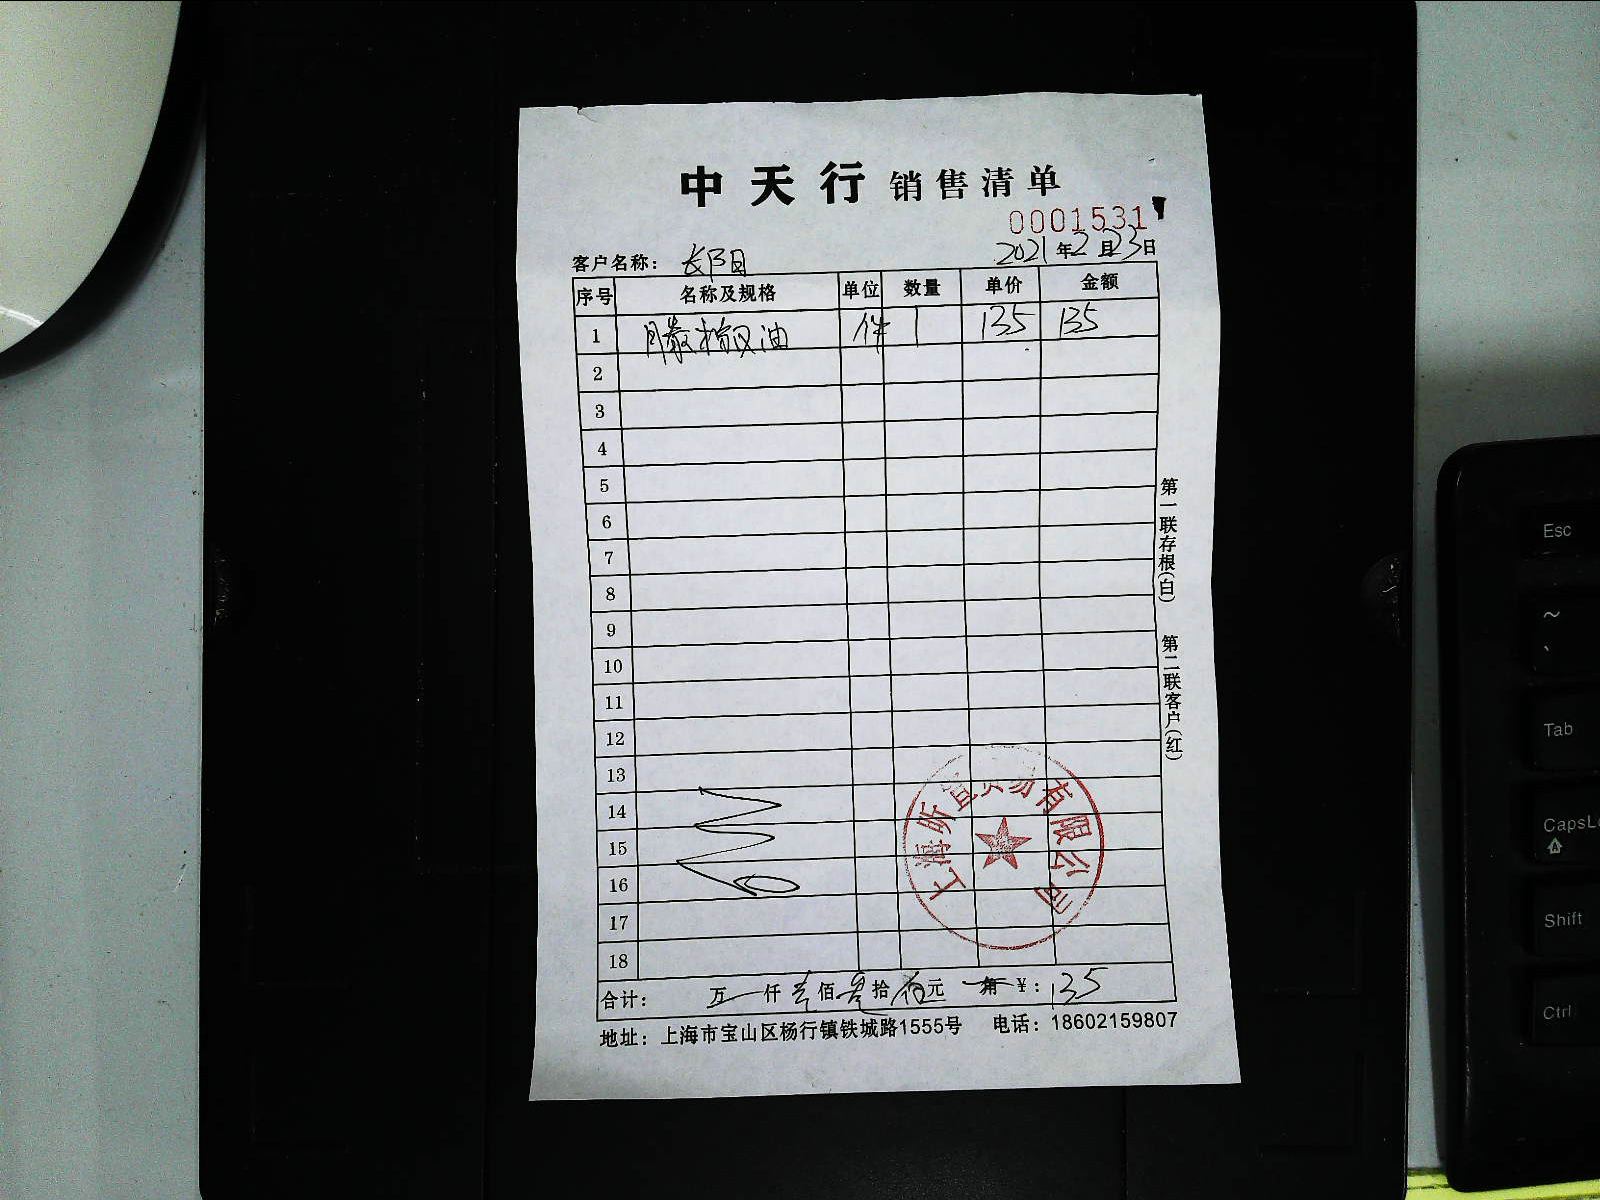 中天行 销售清单
0001531
客户名称： 长阳 2021年2月23日
序号 名称及规格 单位 数量 单价 金额
1 油 件 1 135 135
2
3
4
5
6
7
8
9
10
11
12
13
14
15
16
17
18
合计： 万 仟 壹佰 叁拾 伍元 角 ¥：135
地址：上海市宝山区杨行镇铁城路1555号 电话：18602159807
第一联存根(白) 第二联客户(红)
上海昕益贸易有限公司
Esc
~
`
Tab
CapsLo
Shift
Ctrl